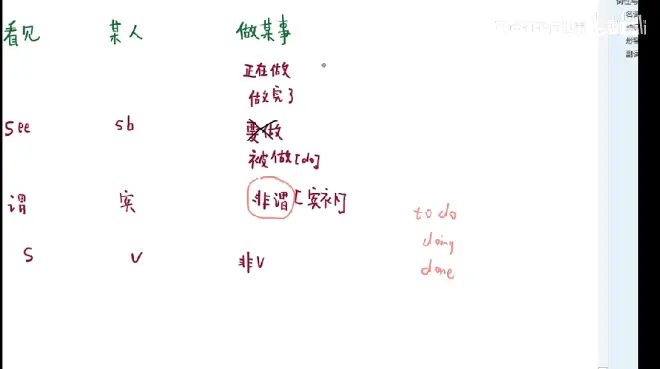 看见 某人 做某事
正在做
做完了
see sb 要做
被做[do]
谓 宾 非谓[宾补]
to do
S V 非V
doing
done